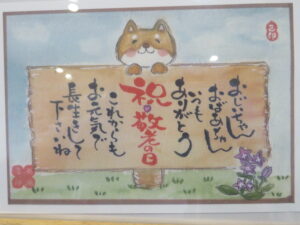 おじいちゃん
おばあちゃん
いつも
ありがとう
祝敬老の日
これからも
お元気で
長生きして
下さいね